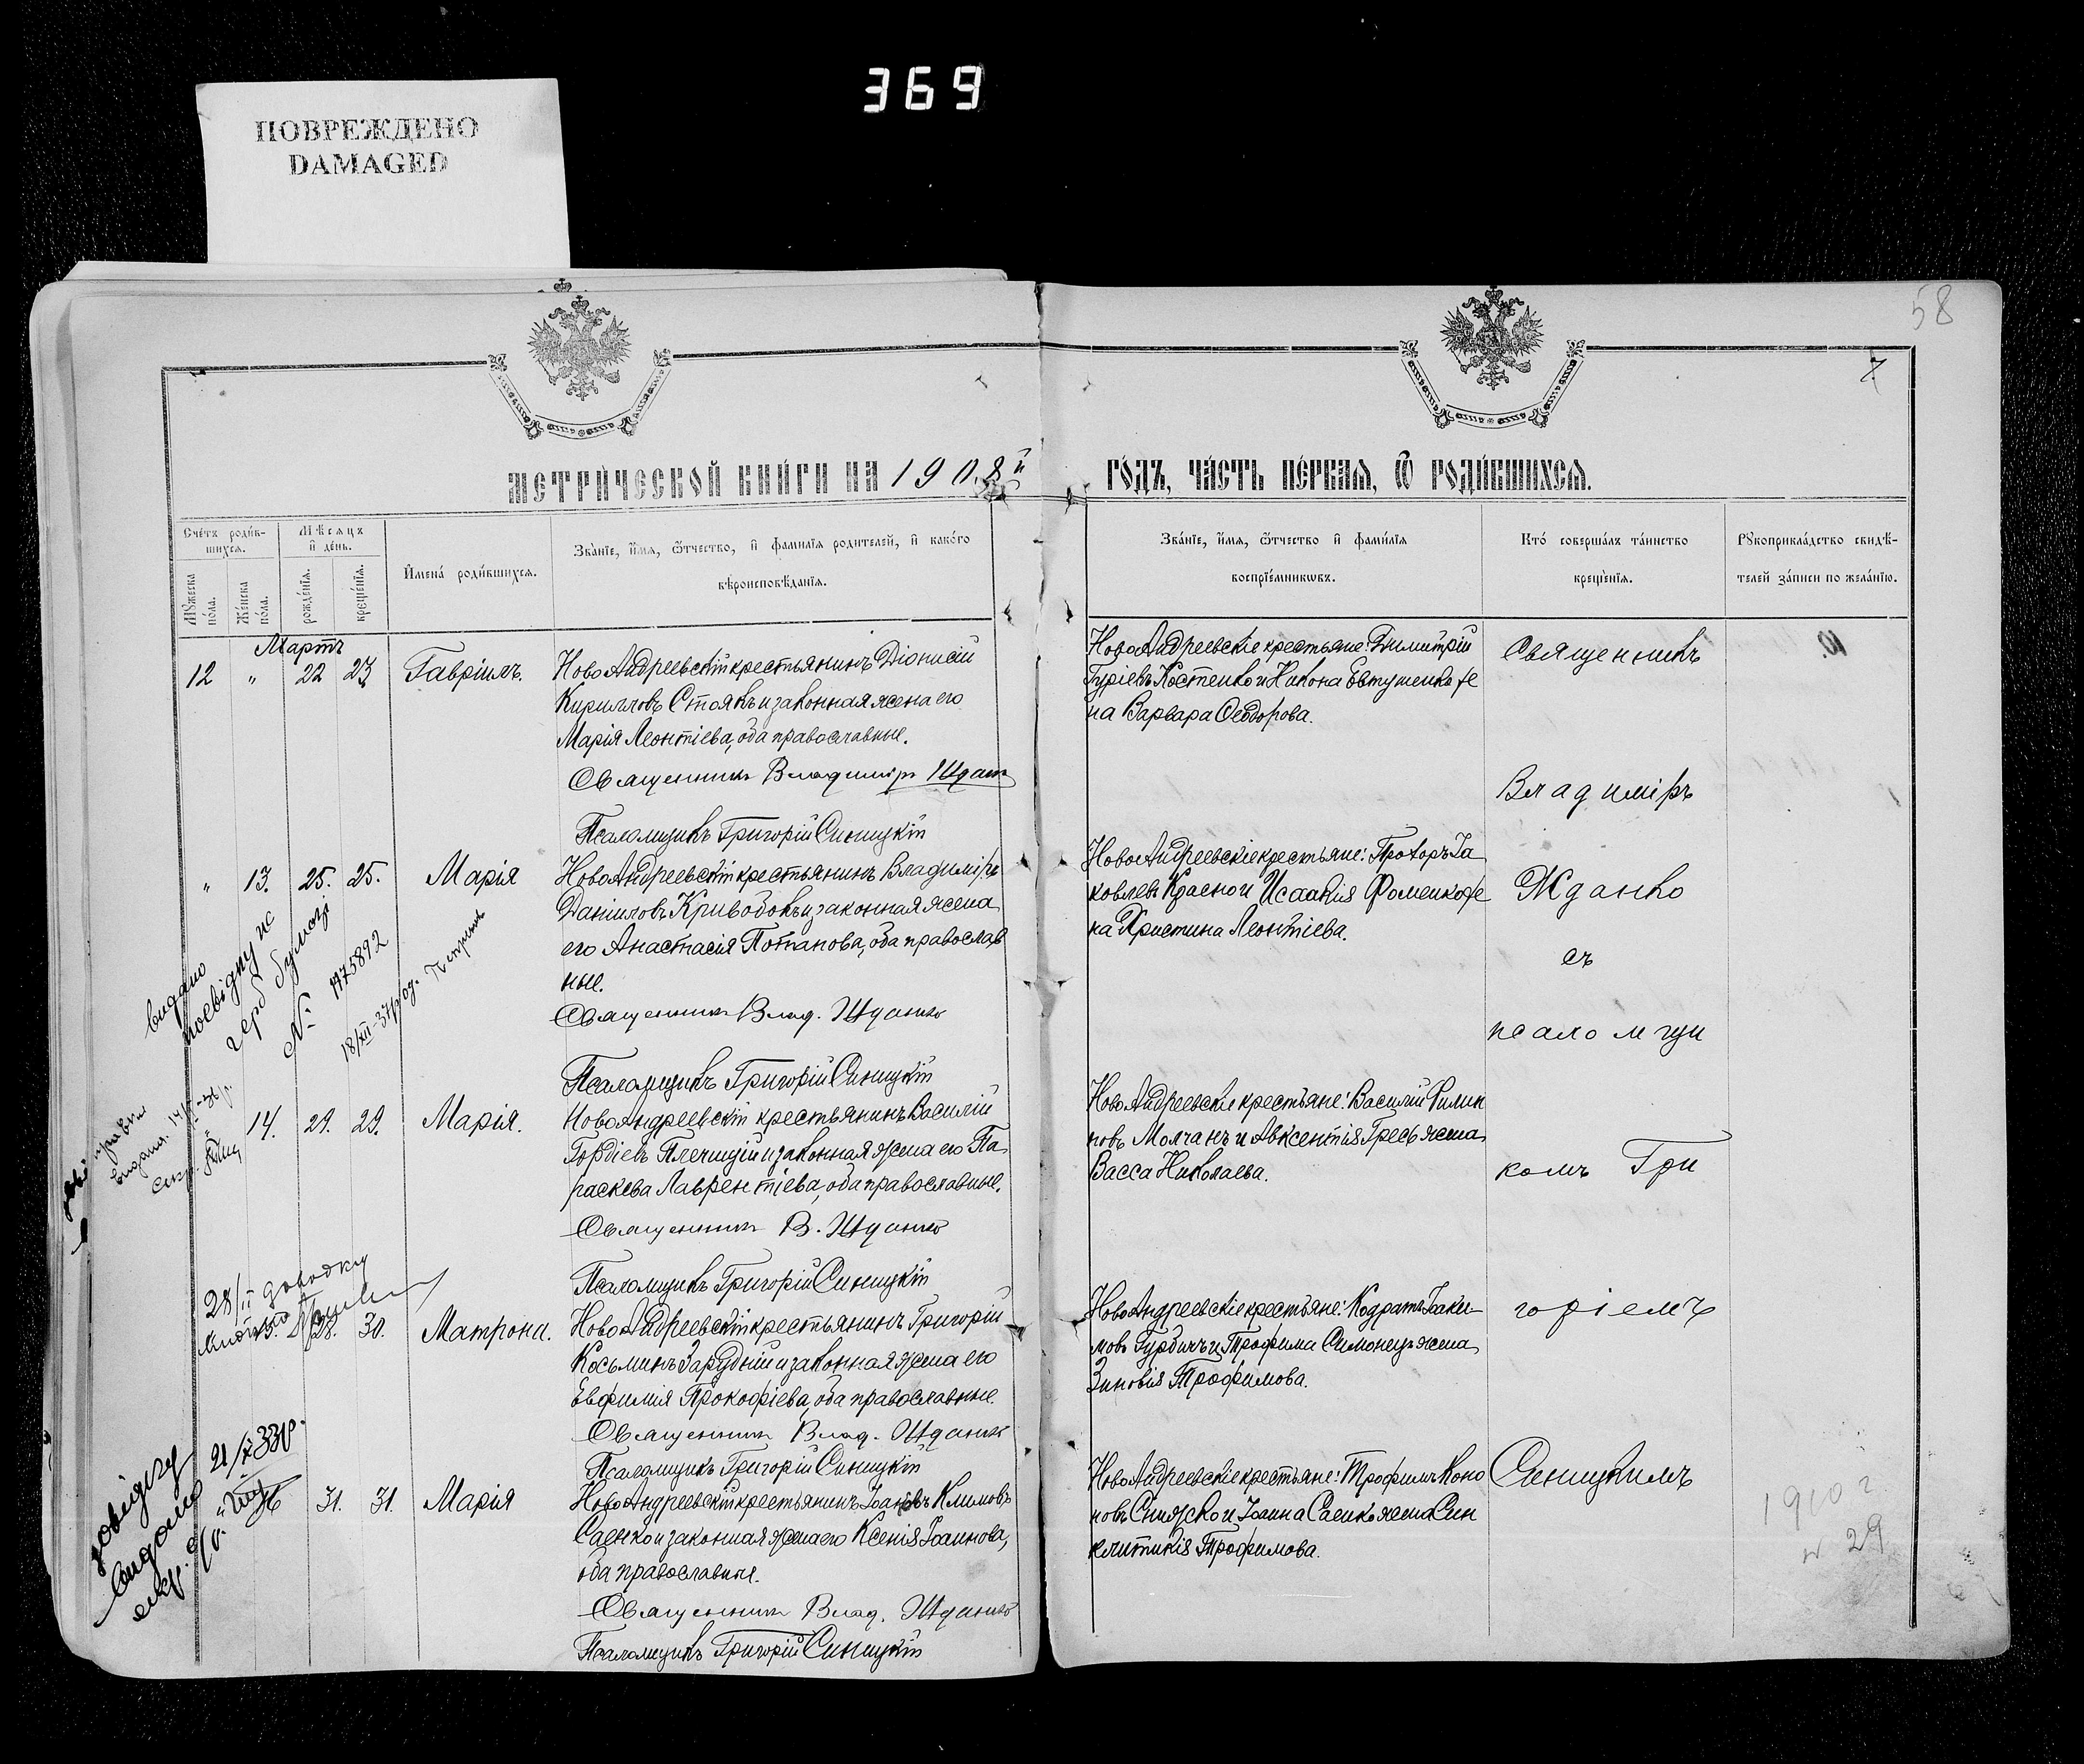 369
ПОВРЕЖДЕНО
DAMAGED
58
7
МЕТРИЧЕСКОЙ КНИГИ НА 1908й
ГОДЪ, ЧАСТЬ ПЕРВАЯ, Ѿ РОДИВШИХСЯ.
Счетъ родив-
шихся.
Мѣсяцъ
и день.
Мужеска
пола.
Женска
пола.
рожденія.
крещенія.
Имена родившихся.
Званіе, имя, ѿтчество, и фамилія родителей, и какого
вѣроисповѣданія.
Званіе, имя, ѿтчество и фамилія
воспріемниковъ.
Кто совершалъ таинство
крещенія.
Рукоприкладство свидѣ-
телей записи по желанію.
Мартъ
12 " 22 23 Гавріилъ.
Ново Андреевскій крестьянинъ Діонисій
Кирилловъ Стоякъ и законная жена его
Марія Леонтіева, оба православные.
Священникъ Владиміръ Жданко
Псаломщикъ Григорій Синицкій
Ново Андреевскіе крестьяне: Димитрій
Гуріевъ Костенко и Никона Евтушенко же
на Варвара Ѳеодорова.
Священникъ
Владиміръ
" 13. 25. 25. Марія
Ново Андреевскій крестьянинъ Владиміръ
Даниловъ Кривобокъ и законная жена
его Анастасія Потапова, оба православ
ные.
Священникъ Влад. Жданко
Псаломщикъ Григорій Синицкій
Ново Андреевскіе крестьяне: Прохоръ Іа
ковлевъ Красно и Исаакія Фоменко же
на Христина Леонтіева.
Жданко
съ
псаломщи
видано
посвідку на
герб бумазі
№ 1475892
" 14. 29. 29. Марія.
Ново Андреевскій крестьянинъ Василій
Гордіевъ Плечицій и законная жена его Па
раскева Лаврентіева, оба православные.
Священникъ В. Жданко
Псаломщикъ Григорій Синицкій
Ново Андреевскіе крестьяне: Василій Филип
повъ Молчанъ и Авксентія Гресь жена
Васса Николаева.
комъ Гри
28/II довідку
15. 28. 30. Матрона.
Ново Андреевскій крестьянинъ Григорій
Косьминъ Зарудній и законная жена его
Евфимія Прокофіева, оба православные.
Священникъ Влад. Жданко
Псаломщикъ Григорій Синицкій
Ново Андреевскіе крестьяне: Кодратъ Іоаки-
мовъ Гурбичъ и Трофима Симонецъ жена
Зиновія Трофимова.
горіемъ
довідку
видано
21/X 33р.
16 31. 31. Марія
Ново Андреевскій крестьянинъ Іоаннъ Климовъ
Саенко и законная жена его Ксенія Іоаннова,
оба православные.
Священникъ Влад. Жданко
Псаломщикъ Григорій Синицкій
Ново Андреевскіе крестьяне: Трофимъ Коно
новъ Снижко и Іоанна Саенко жена Син
клитикія Трофимова.
Синицкимъ
1910 г
№ 29